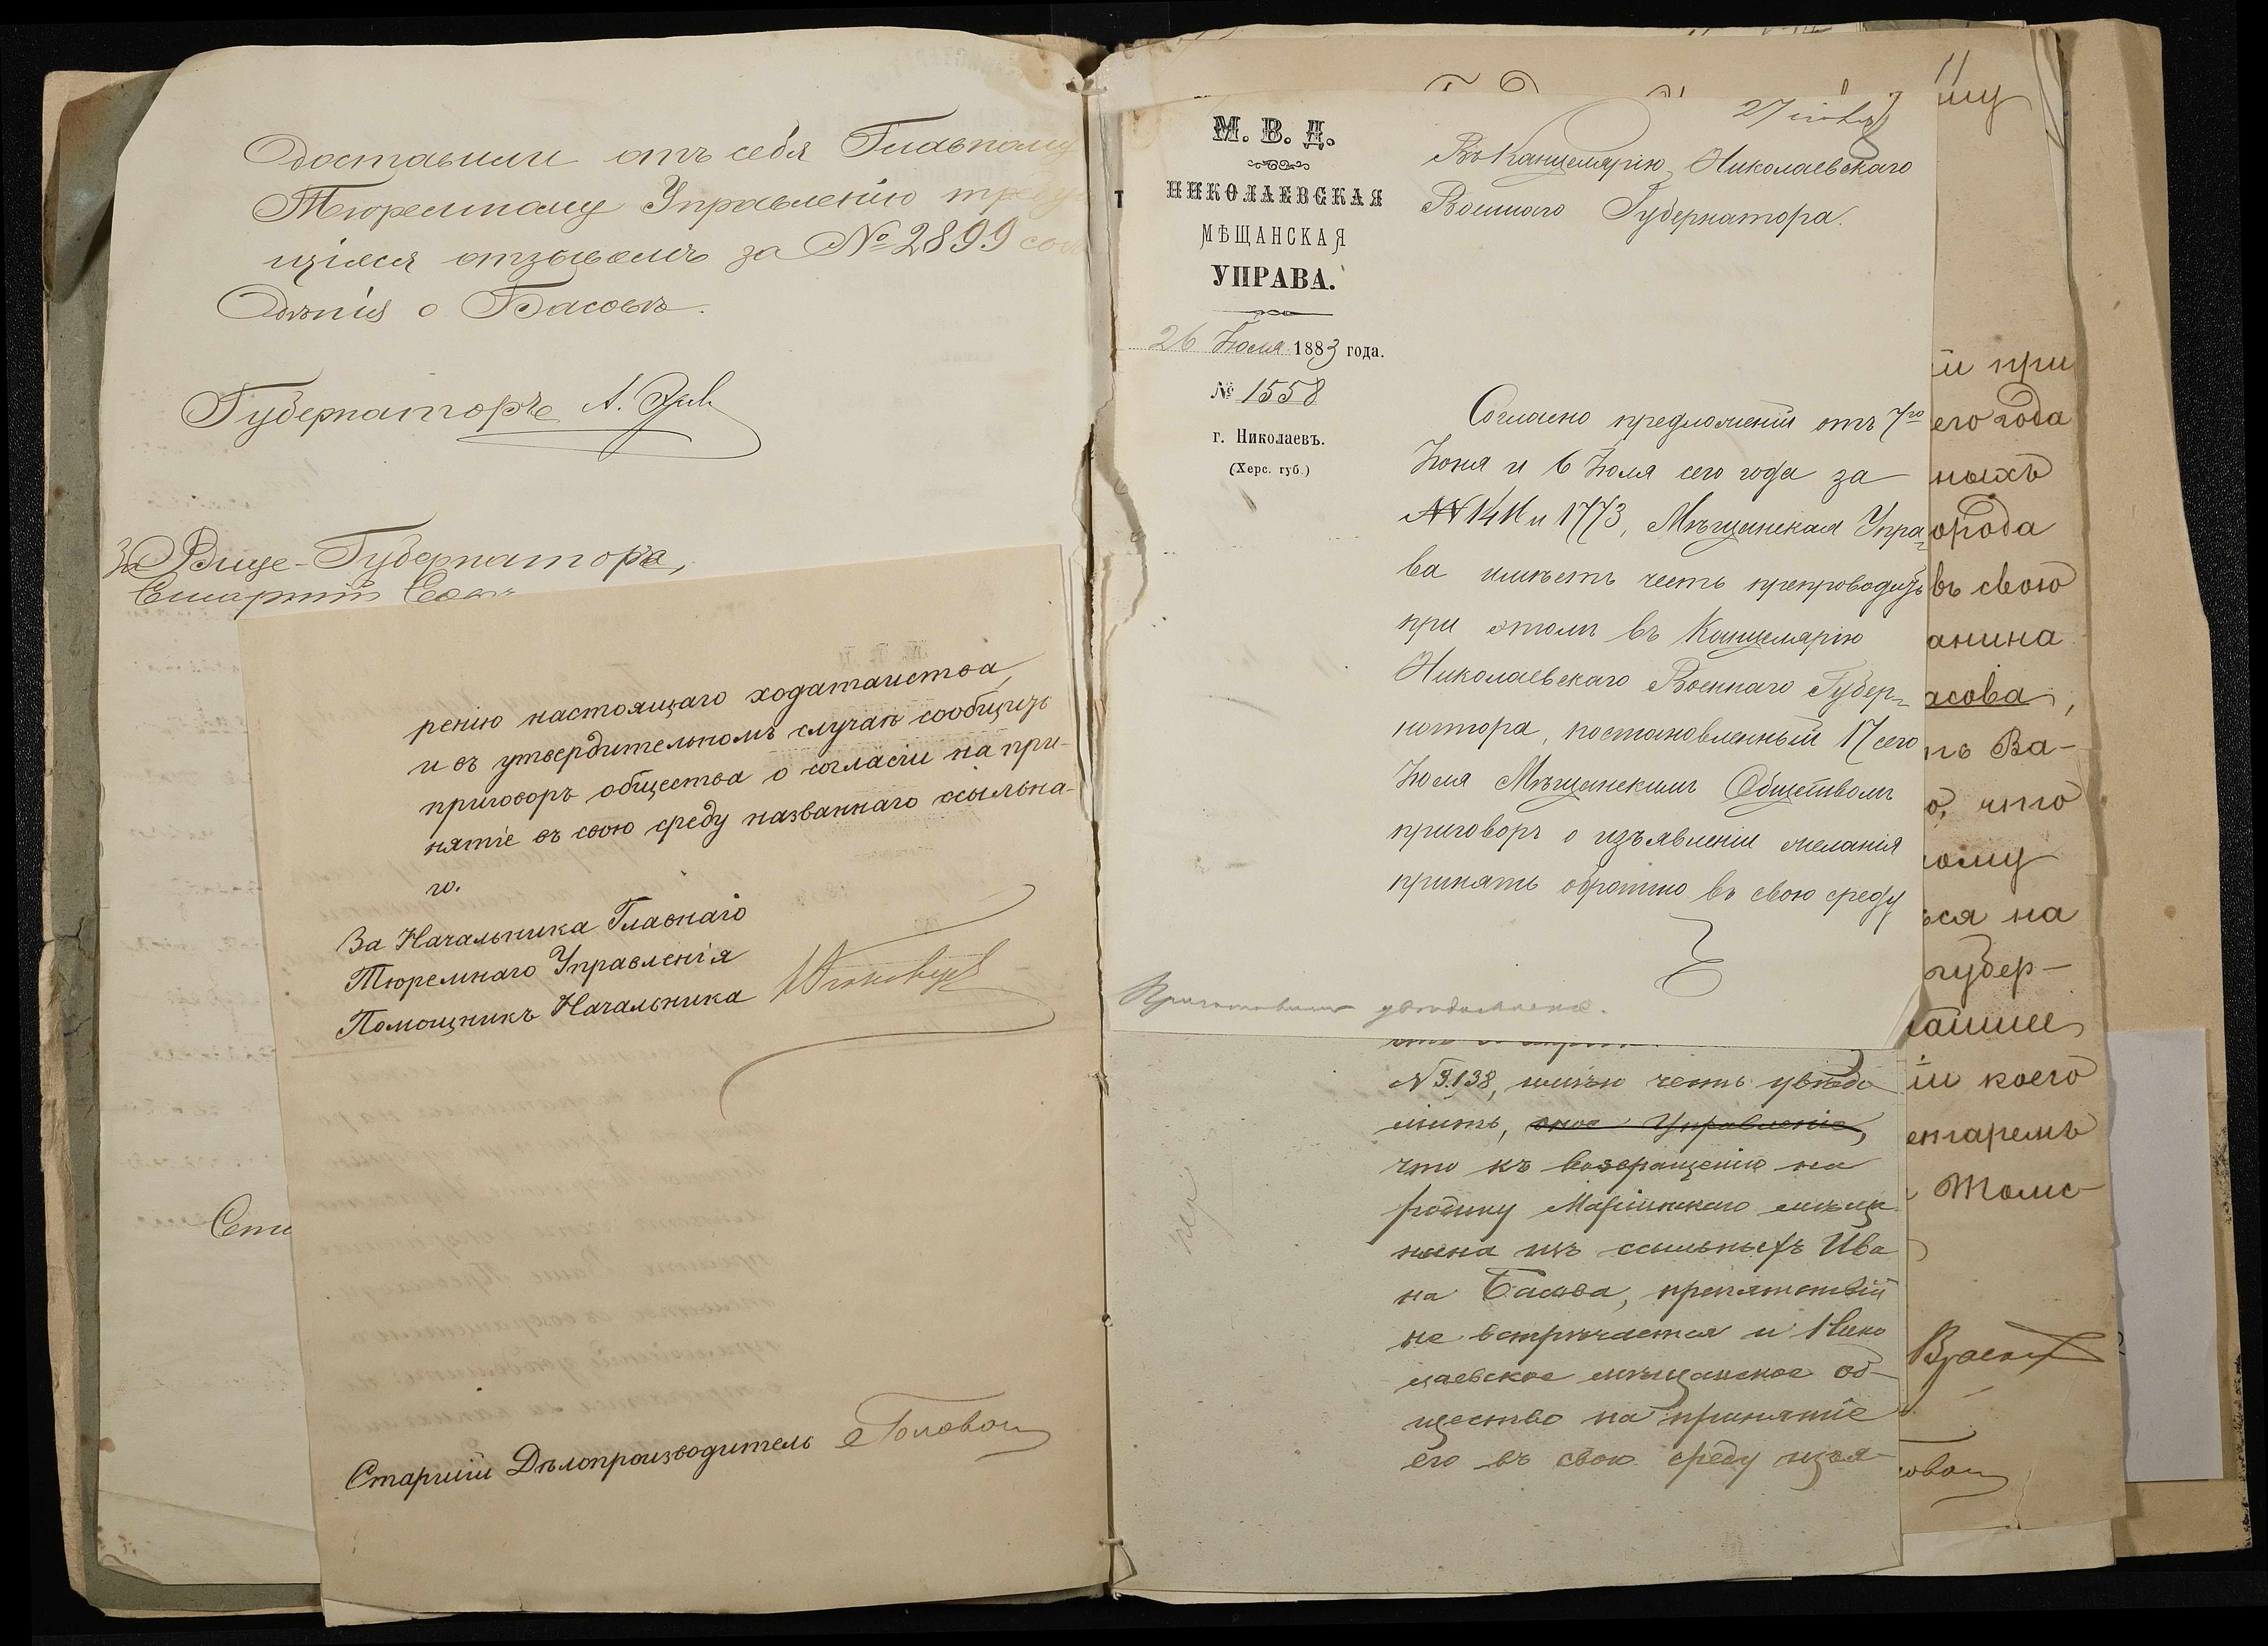 доставили отъ себя Главному
Тюремному Управленію требую
щіяся отзывомъ за № 2899 свѣ
дѣнія о Басовѣ.
Губернаторъ А.
За Вице-Губернатора,
Старшій Совѣ
рению настоящаго ходатайства,
и въ утвердительномъ случаѣ сообщить
приговоръ общества о согласіи на при-
нятіе въ свою среду названнаго ссыльна-
го.
За Начальника Главнаго
Тюремнаго Управленія
Помощникъ Начальника
Старшій Дѣлопроизводитель
М. В. Д.
НИКОЛАЕВСКАЯ
МѢЩАНСКАЯ
УПРАВА.
26 Іюля 1883 года.
№ 1558
г. Николаевъ.
(Херс. губ.)
27
Въ Канцелярію Николаевскаго
Военнаго Губернатора.
Согласно предложеній отъ 7го
Іюня и 6 Іюля сего года за
NN 1411 и 1773, Мѣщанская Упра-
ва имѣетъ честь препроводить
при этомъ въ Канцелярію
Николаевскаго Военнаго Губер-
натора, постановленный 17 сего
Іюля Мѣщанскимъ Обществомъ
приговоръ о изъявленіи желанія
принять обратно въ свою среду
Приготовить увѣдомленіе.
N 3138, имѣю честь увѣдо
мить, оное Управленіе,
что къ возвращенію на
родину Маріинскаго мѣща
нина изъ ссыльныхъ Ива
на Басова, препятствій
не встрѣчается и Нико
лаевское мѣщанское об-
щество на принятіе
его въ свою среду изъя-
11
му
й при
его года
ныхъ
орода
въ свою
анина
асова,
ть Ва-
о, что
ому
ься на
губер-
йшее
ій коего
ентаремъ
Томс-